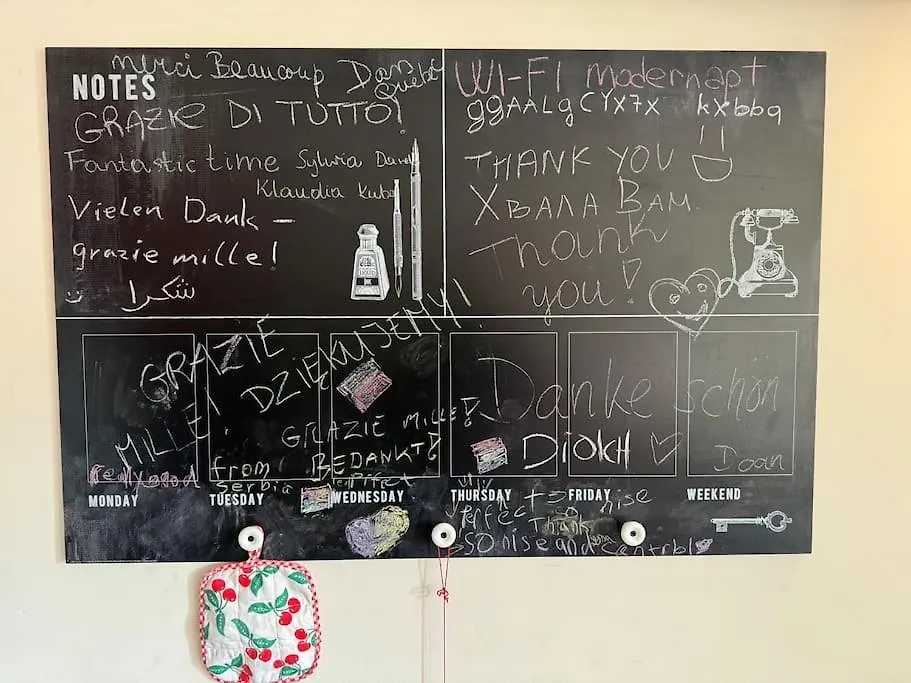 merci Beaucoup Dan
NOTES
GRAZIE DI TUTTO!
Fantastic time Sylwia
Klaudia Kuba
Vielen Dank –
grazie mille!
شكرا
WI-FI modernapt
ggAALgCYX7X kxbbg
THANK YOU
ХВАЛА ВАМ
Thank
you!
GRAZIE
MILLE!
DZIĘKUJEMY!
GRAZIE MILLE!
BEDANKT!
from
Serbia
Danke schön
DIOKH
Daan
MONDAY
TUESDAY
WEDNESDAY
THURSDAY
FRIDAY
WEEKEND
nise
Perfect
Thank
SO nise and
LIQUID